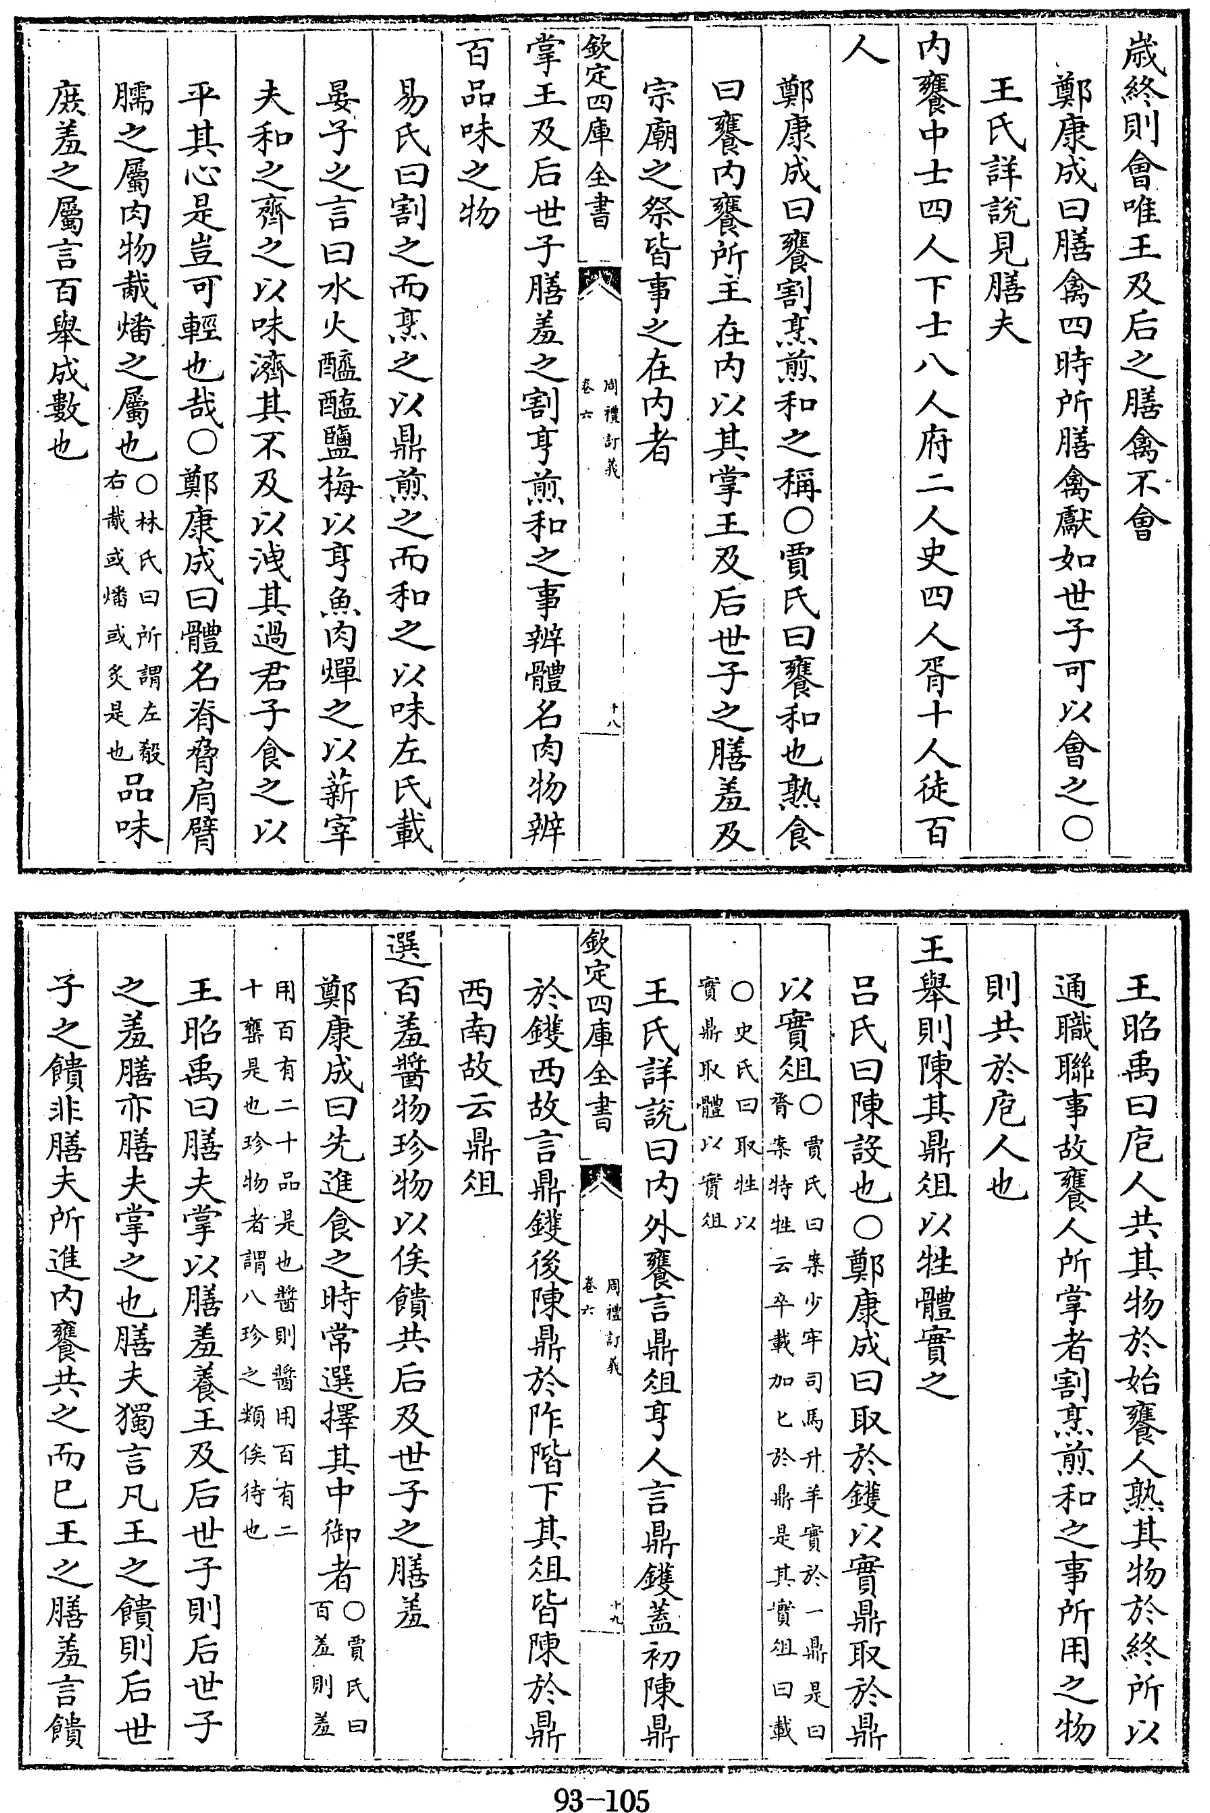 歳終則會唯王及后之膳禽不會
鄭康成曰膳禽四時所膳禽獻如世子可以會之○
王氏詳說見膳夫
内饔中士四人下士八人府二人史四人胥十人徒百
人
鄭康成曰饔割烹煎和之稱○賈氏曰饔和也熟食
曰饔内饔所主在内以其掌王及后世子之膳羞及
宗廟之祭皆事之在内者
欽定四庫全書
周禮訂義
卷六
十八
掌王及后世子膳羞之割亨煎和之事辨體名肉物辨
百品味之物
易氏曰割之而烹之以鼎煎之而和之以味左氏載
晏子之言曰水火醯醢鹽梅以亨魚肉燀之以薪宰
夫和之齊之以味濟其不及以洩其過君子食之以
平其心是豈可輕也哉○鄭康成曰體名脊脅肩臂
臑之屬肉物胾燔之屬也○林氏曰所謂左殽
右胾或燔或炙是也品味
庶羞之屬言百舉成數也
王昭禹曰庖人共其物於始饔人熟其物於終所以
通職聯事故饔人所掌者割烹煎和之事所用之物
則共於庖人也
王舉則陳其鼎俎以牲體實之
呂氏曰陳設也○鄭康成曰取於鑊以實鼎取於鼎
以實俎○賈氏曰案少牢司馬升羊實於一鼎是曰
脀案特牲云卒載加匕於鼎是其實俎曰載
○史氏曰取牲以
實鼎取體以實俎
王氏詳說曰内外饔言鼎俎亨人言鼎鑊蓋初陳鼎
欽定四庫全書
周禮訂義
卷六
十九
於鑊西故言鼎鑊後陳鼎於阼階下其俎皆陳於鼎
西南故云鼎俎
選百羞醬物珍物以俟饋共后及世子之膳羞
鄭康成曰先進食之時常選擇其中御者○賈氏曰
百羞則羞
用百有二十品是也醬則醬用百有二
十罋是也珍物者謂八珍之類俟待也
王昭禹曰膳夫掌以膳羞養王及后世子則后世子
之羞膳亦膳夫掌之也膳夫獨言凡王之饋則后世
子之饋非膳夫所進内饔共之而已王之膳羞言饋
93-105